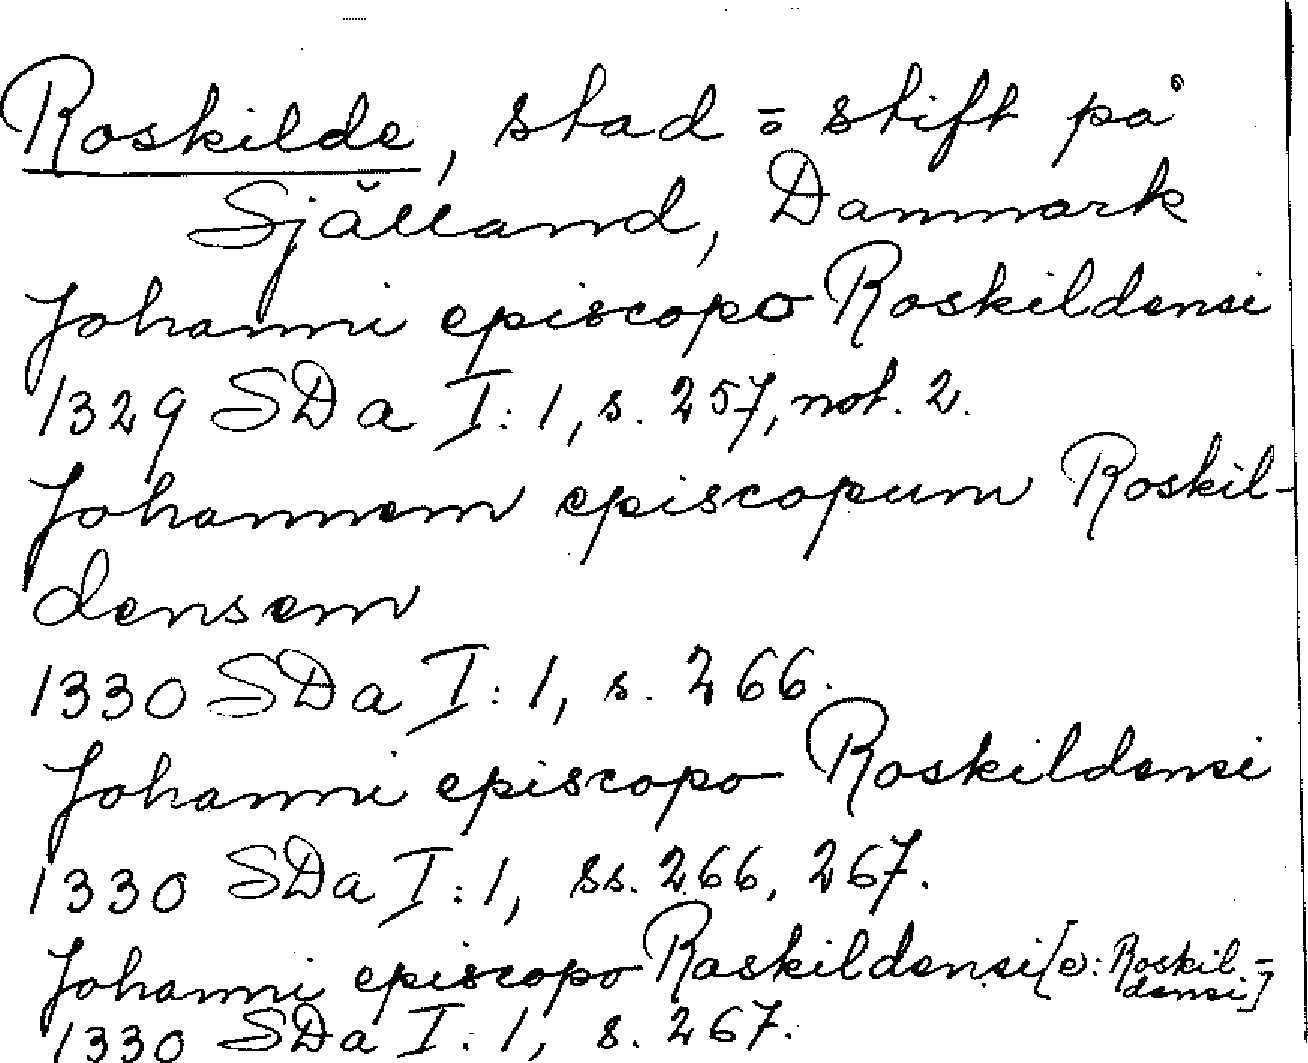 Roskilde, stad o stift på
Själland, Danmark
Johanni episcopo Roskildensi
1329 SDa I:1, s. 257, not. 2.
Johannem episcopum Roskil-
densem
1330 SDa I:1, s. 266.
Johanni episcopo Roskildensi
1330 SDa I:1, ss. 266, 267.
Johanni episcopo Raskildensi [ɔ: Roskil-
densi]
1330 SDa I:1, s. 267.